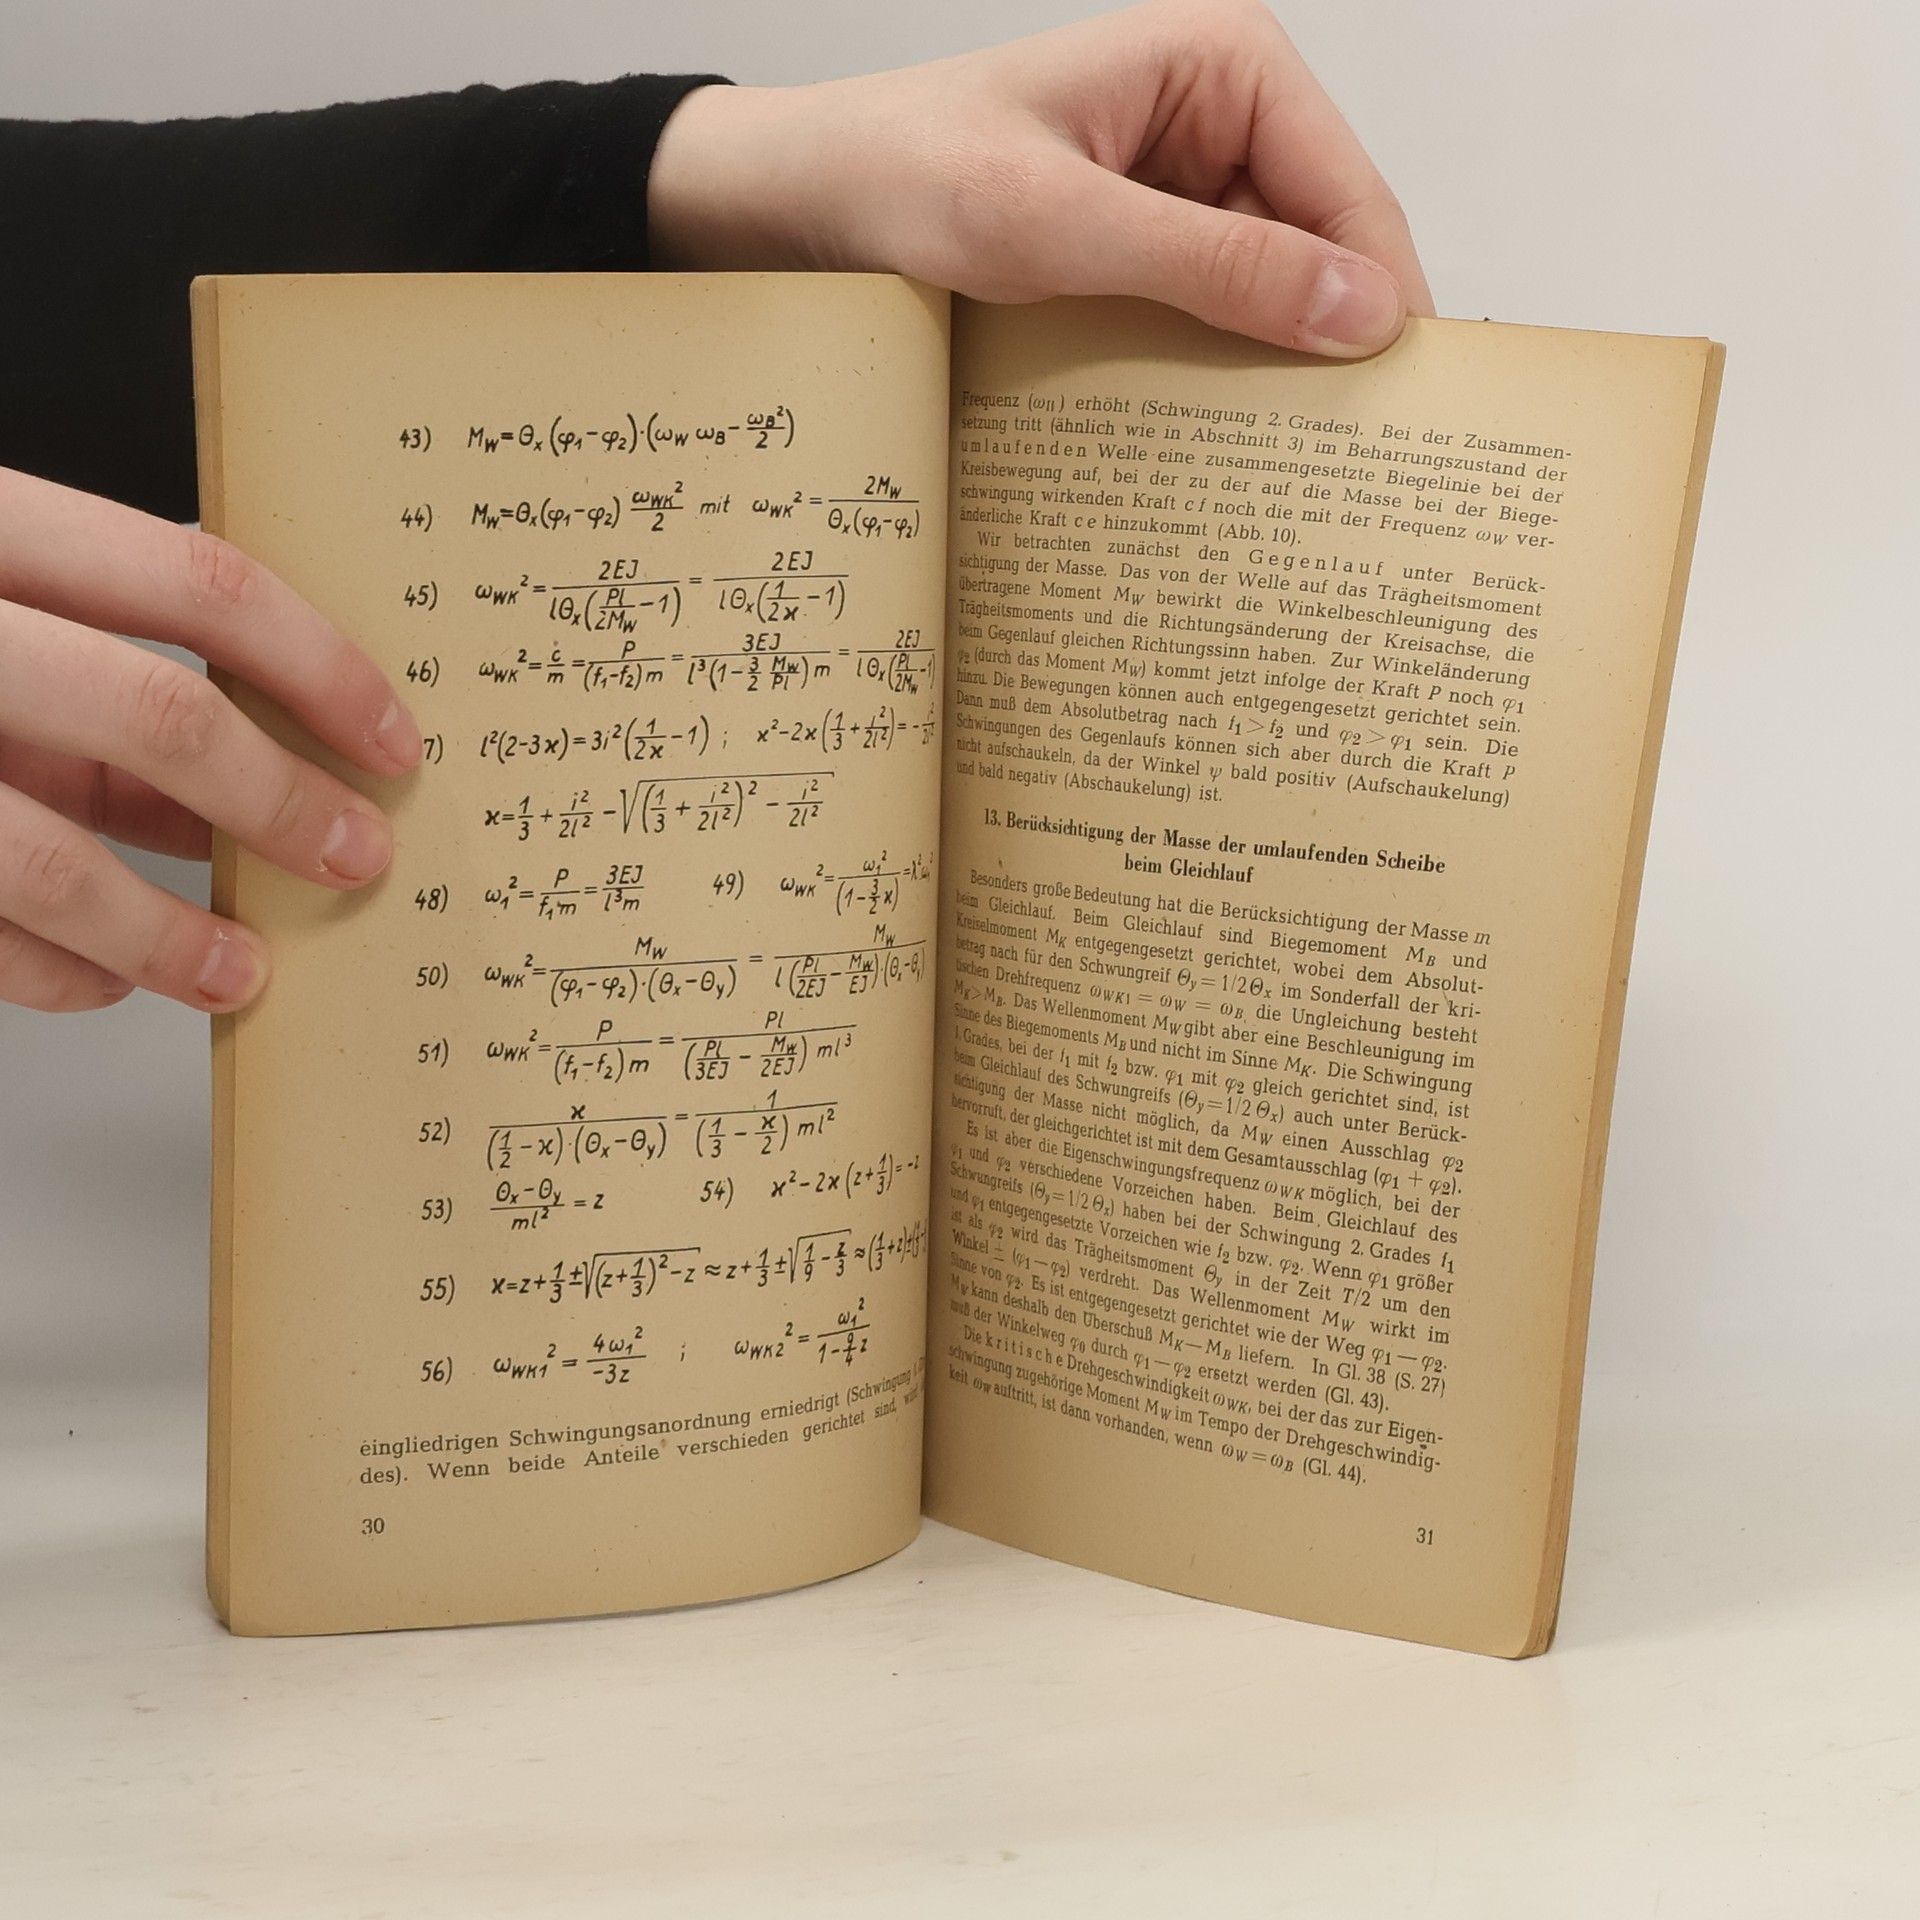 43) M_W = Θ_x (φ₁ − φ₂)·(ω_W ω_B − ω_B²/2)
44) M_W = Θ_x (φ₁ − φ₂) ω_WK²/2 mit ω_WK² = 2M_W/(Θ_x (φ₁ − φ₂))
45) ω_WK² = 2EJ/(lΘ_x (Pl/2M_W − 1)) = 2EJ/(lΘ_x (1/2ϰ − 1))
46) ω_WK² = c/m = P/((f₁ − f₂) m) = 3EJ/(l³(1 − 3/2 M_W/Pl) m) = 2EJ/(lΘ_x (Pl/2M_W − 1)
7) l²(2 − 3ϰ) = 3i²(1/2ϰ − 1) ; ϰ² − 2ϰ(1/3 + i²/2l²) = −
ϰ = 1/3 + i²/2l² − √((1/3 + i²/2l²)² − i²/2l²)
48) ω₁² = P/f₁m = 3EJ/l³m 49) ω_WK² = ω₁²/(1 − 3/2 ϰ) =
50) ω_WK² = M_W/((φ₁ − φ₂)·(Θ_x − Θ_y)) = M_W/(l (Pl/2EJ − M_W/EJ)·(Θ_x − Θ_y)
51) ω_WK² = P/((f₁ − f₂) m) = Pl/((Pl/3EJ − M_W/2EJ) ml³)
52) ϰ/((1/2 − ϰ)·(Θ_x − Θ_y)) = 1/((1/3 − ϰ/2) ml²)
53) (Θ_x − Θ_y)/ml² = z 54) ϰ² − 2ϰ(z + 1/3) = −z
55) ϰ = z + 1/3 ± √((z + 1/3)² − z) ≈ z + 1/3 ± √(1/9 − z/3) ≈ (1/3 + z) ±
56) ω_WK1² = 4ω₁²/−3z ; ω_WK2² = ω₁²/(1 − 9/4 z)
eingliedrigen Schwingungsanordnung erniedrigt (Schwingung
des). Wenn beide Anteile verschieden gerichtet sind,
30
Frequenz (ω_II) erhöht (Schwingung 2. Grades). Bei der Zusammen-
setzung tritt (ähnlich wie in Abschnitt 3) im Beharrungszustand der
umlaufenden Welle eine zusammengesetzte Biegelinie bei der
Kreisbewegung auf, bei der zu der auf die Masse bei der Biege-
schwingung wirkenden Kraft c f noch die mit der Frequenz ω_W ver-
änderliche Kraft c e hinzukommt (Abb. 10).
Wir betrachten zunächst den Gegenlauf unter Berück-
sichtigung der Masse. Das von der Welle auf das Trägheitsmoment
übertragene Moment M_W bewirkt die Winkelbeschleunigung des
Trägheitsmoments und die Richtungsänderung der Kreisachse, die
beim Gegenlauf gleichen Richtungssinn haben. Zur Winkeländerung
φ₂ (durch das Moment M_W) kommt jetzt infolge der Kraft P noch φ₁
hinzu. Die Bewegungen können auch entgegengesetzt gerichtet sein.
Dann muß dem Absolutbetrag nach f₁ > f₂ und φ₂ > φ₁ sein. Die
Schwingungen des Gegenlaufs können sich aber durch die Kraft P
nicht aufschaukeln, da der Winkel ψ bald positiv (Aufschaukelung)
und bald negativ (Abschaukelung) ist.
13. Berücksichtigung der Masse der umlaufenden Scheibe
beim Gleichlauf
Besonders große Bedeutung hat die Berücksichtigung der Masse m
beim Gleichlauf. Beim Gleichlauf sind Biegemoment M_B und
Kreiselmoment M_K entgegengesetzt gerichtet, wobei dem Absolut-
betrag nach für den Schwungreif Θ_y = 1/2 Θ_x im Sonderfall der kri-
tischen Drehfrequenz ω_WK1 = ω_W = ω_B, die Ungleichung besteht
M_K > M_B. Das Wellenmoment M_W gibt aber eine Beschleunigung im
Sinne des Biegemoments M_B und nicht im Sinne M_K. Die Schwingung
1. Grades, bei der f₁ mit f₂ bzw. φ₁ mit φ₂ gleich gerichtet sind, ist
beim Gleichlauf des Schwungreifs (Θ_y = 1/2 Θ_x) auch unter Berück-
sichtigung der Masse nicht möglich, da M_W einen Ausschlag φ₂
hervorruft, der gleichgerichtet ist mit dem Gesamtausschlag (φ₁ + φ₂).
Es ist aber die Eigenschwingungsfrequenz ω_WK möglich, bei der
φ₁ und φ₂ verschiedene Vorzeichen haben. Beim Gleichlauf des
Schwungreifs (Θ_y = 1/2 Θ_x) haben bei der Schwingung 2. Grades f₁
und φ₁ entgegengesetzte Vorzeichen wie f₂ bzw. φ₂. Wenn φ₁ größer
ist als φ₂ wird das Trägheitsmoment Θ_y in der Zeit T/2 um den
Winkel ± (φ₁ − φ₂) verdreht. Das Wellenmoment M_W wirkt im
Sinne von φ₂. Es ist entgegengesetzt gerichtet wie der Weg φ₁ − φ₂.
M_W kann deshalb den Überschuß M_K − M_B liefern. In Gl. 38 (S. 27)
muß der Winkelweg φ₀ durch φ₁ − φ₂ ersetzt werden (Gl. 43).
Die kritische Drehgeschwindigkeit ω_WK, bei der das zur Eigen-
schwingung zugehörige Moment M_W im Tempo der Drehgeschwindig-
keit ω_W auftritt, ist dann vorhanden, wenn ω_W = ω_B (Gl. 44).
31